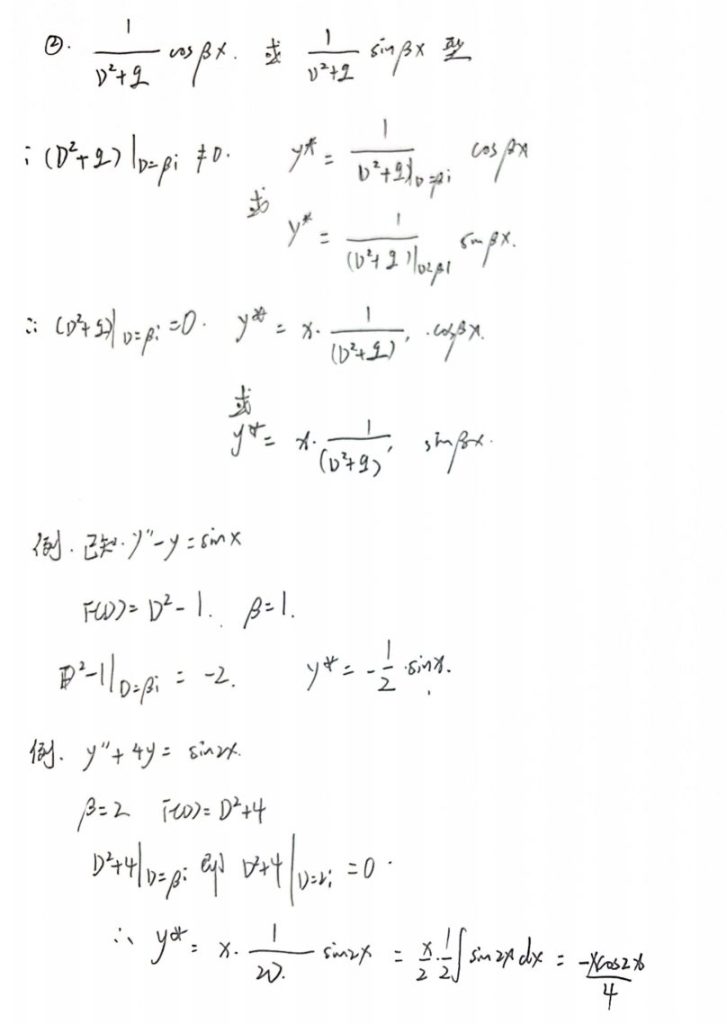 ②. 1/(D²+q) cosβx. 或 1/(D²+q) sinβx 型
i (D²+q)|D=βi ≠0. y* = 1/(D²+q)|D=βi cosβx
或 y* = 1/(D²+q)|D=βi sinβx.
ii (D²+q)|D=βi =0. y* = x· 1/(D²+q)' ·cosβx.
或
y* = x· 1/(D²+q)' sinβx.
例. 已知. y''-y=sinx
F(D)= D²-1. β=1.
D²-1|D=βi = -2. y* = -1/2 ·sinx.
例. y''+4y= sin2x.
β=2 F(D)= D²+4
D²+4|D=βi 即 D²+4|D=2i =0.
∴ y* = x· 1/2D. sin2x = x/2·1/2∫sin2x dx = -xcos2x/4